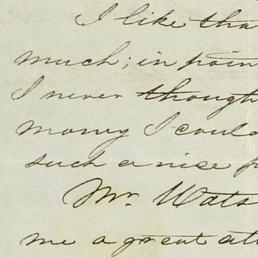 I like tha
much; in poin
I never though
money I coul
such a nice p
Mr. Wats
me a great at